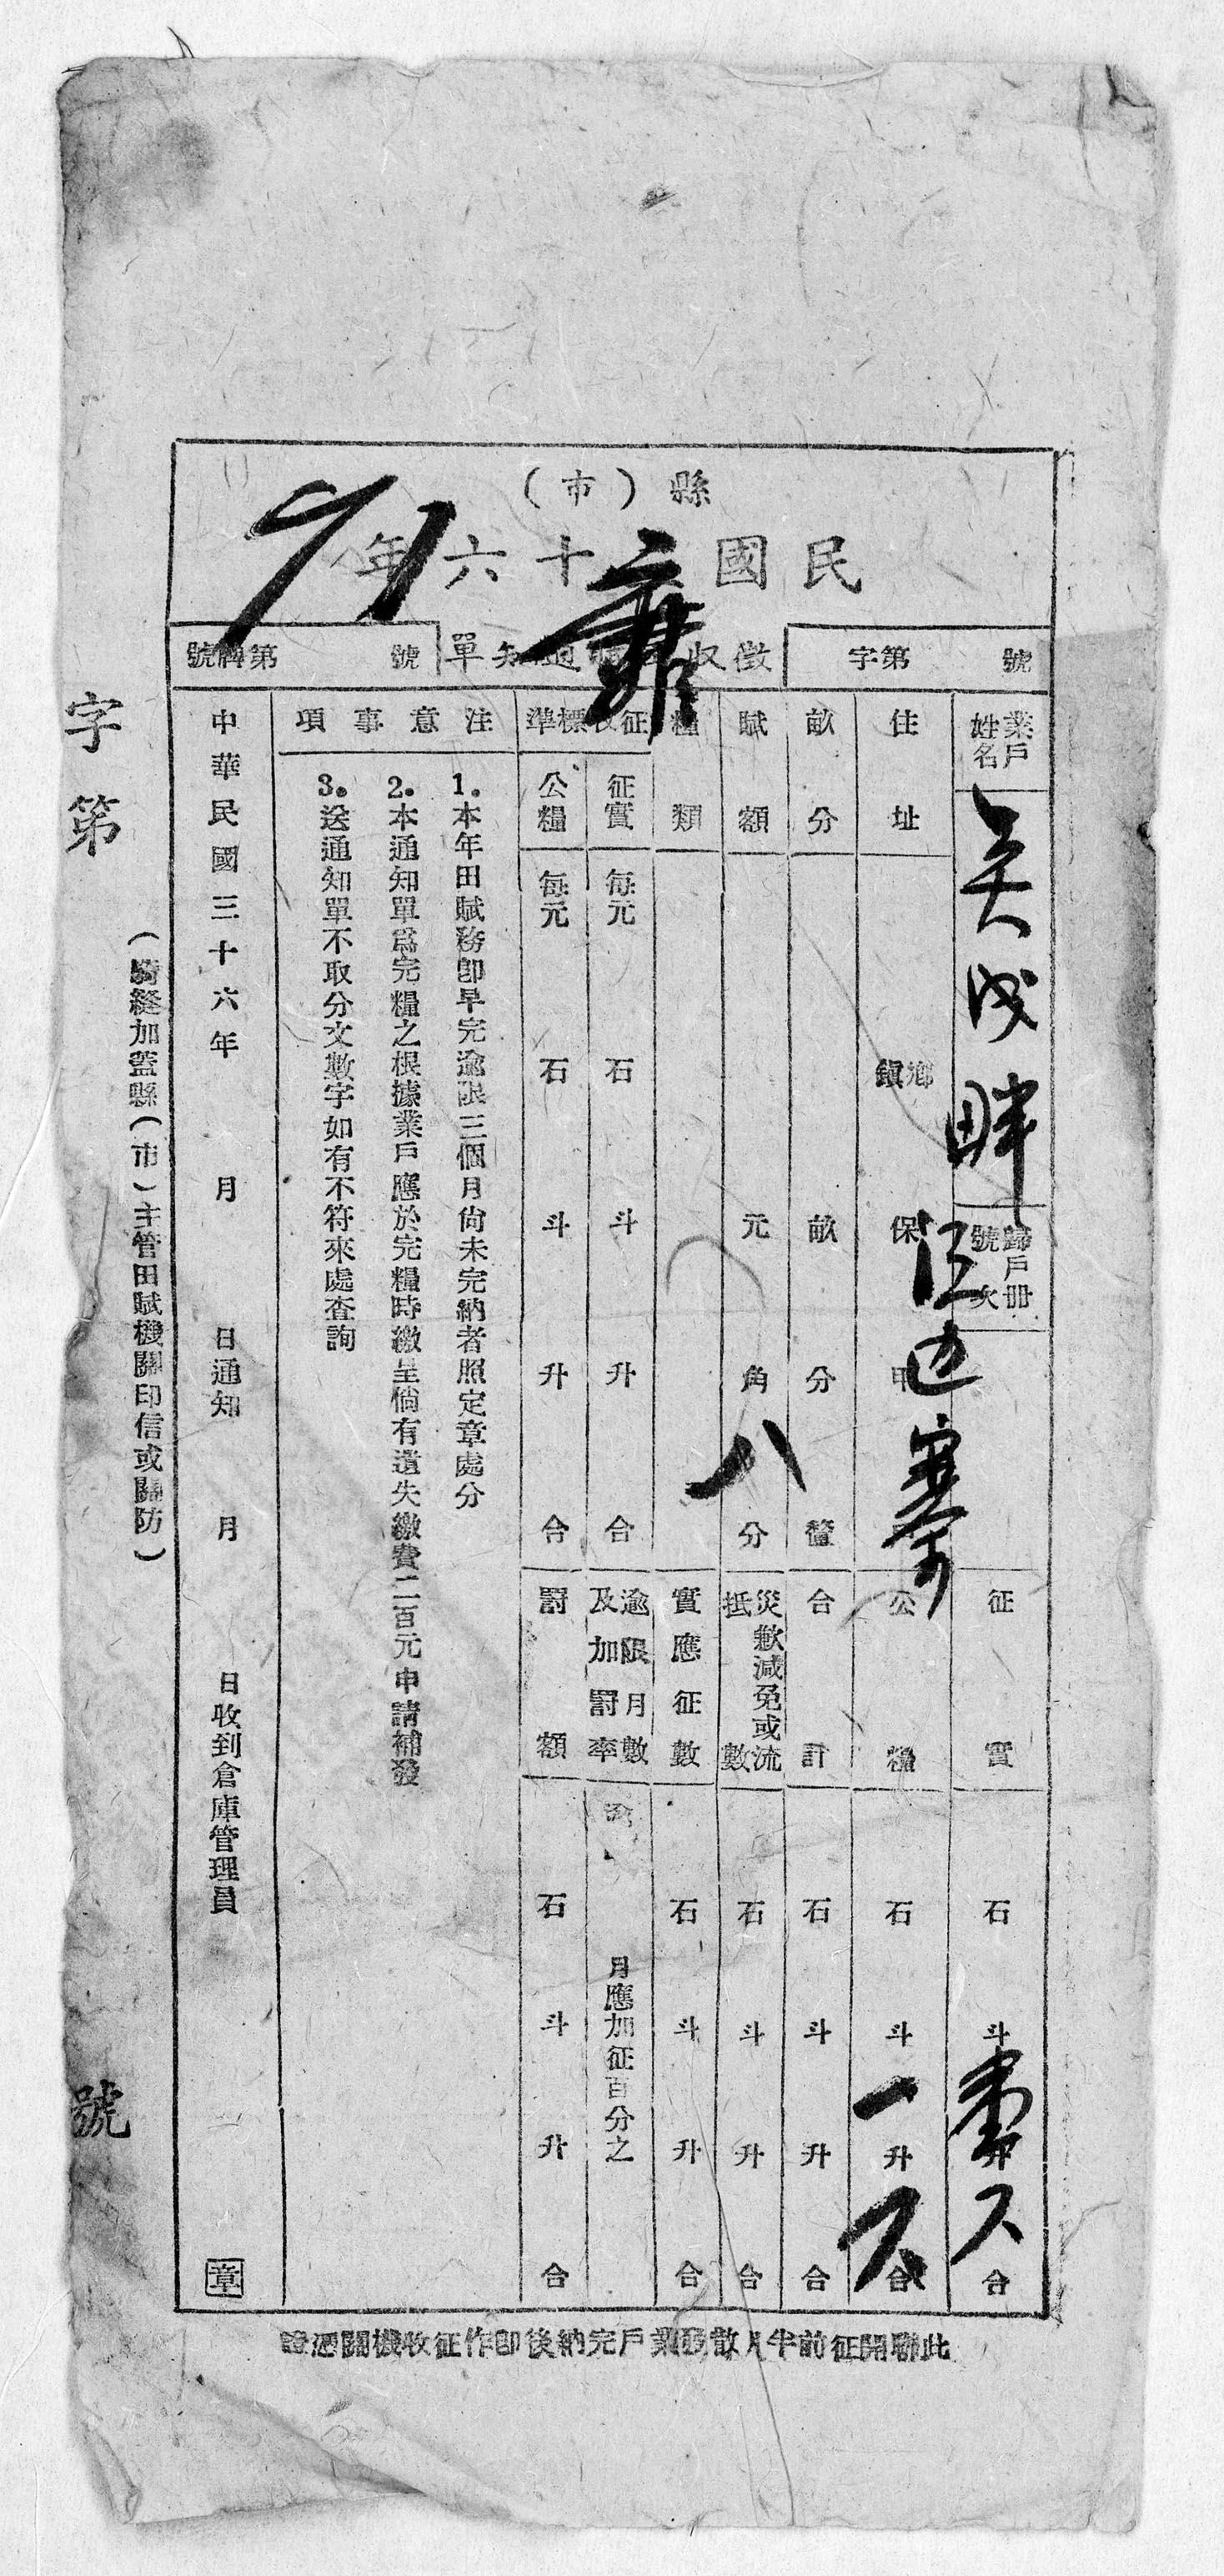 縣（市）
民國　十六年
號　第字
徵收　通知單
號　第牌號
業戶姓名
吳成畔
歸戶冊號次
住址
鄉鎮　保　甲
江边寨
畝分
畝　分　釐
賦額
元　角　八　分
糧類
征收標準
征實　每元　石　斗　升　合
公糧　每元　石　斗　升　合
征實　石　斗　升　合
公糧　石　斗　一　升　合
合計　石　斗　升　合
災歉減免或流抵數　石　斗　升　合
實應征數　石　斗　升　合
逾限月數及加罰率　逾　月應加征百分之
罰額　石　斗　升　合
注意事項
1.本年田賦務卽早完逾限三個月尙未完納者照定章處分
2.本通知單爲完糧之根據業戶應於完糧時繳呈倘有遺失繳費二百元申請補發
3.送通知單不取分文數字如有不符來處查詢
中華民國三十六年　月　日通知　月　日收到倉庫管理員　章
（騎縫加蓋縣（市）主管田賦機關印信或關防）
字第　號
此聯開征前半月散發業戶完納後卽作征收機關憑證